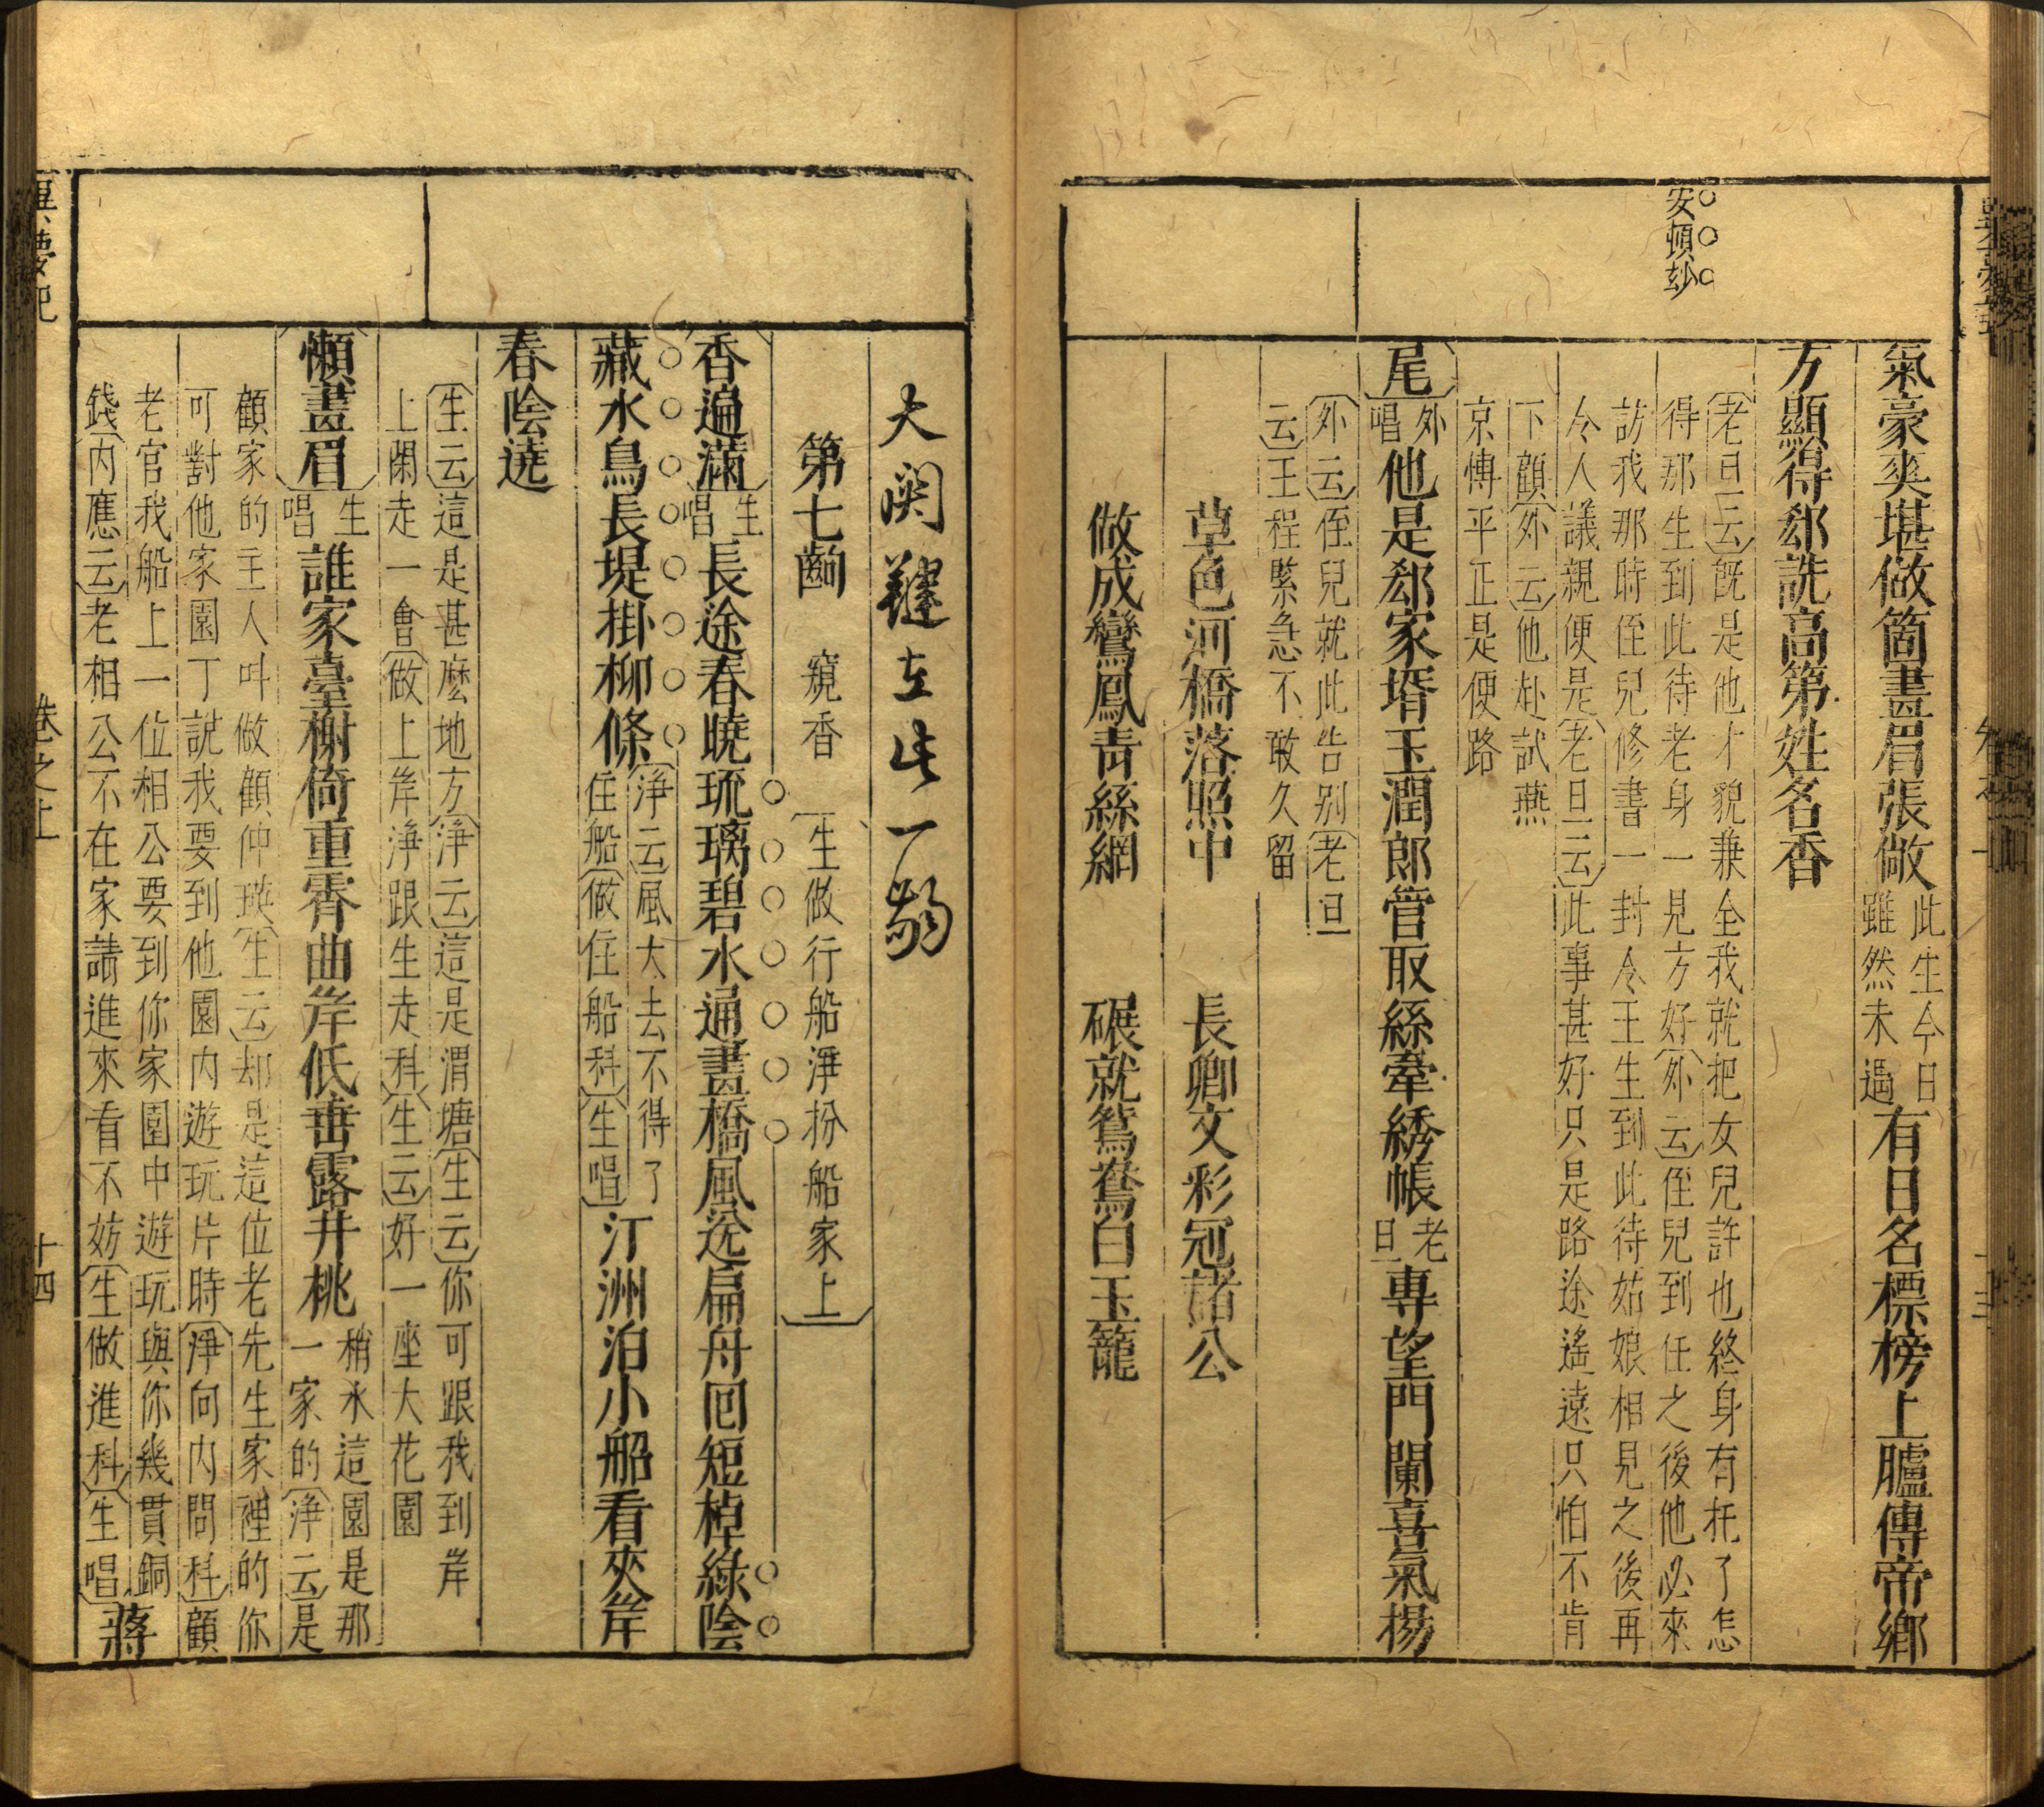 安頓玅
氣豪爽堪做箇畫眉張敞此生今日雖然未遇有日名標榜上臚傳帝鄉
方顯得郄詵高第姓名香
〔老旦云〕旣是他才貌兼全我就把女兒許也終身有托了怎
得那生到此待老身一見方好〔外云〕侄兒到任之後他必來
訪我那時侄兒修書一封令王生到此待姑娘相見之後再
令人議親便是〔老旦云〕此事甚好只是路途遙遠只怕不肯
下顧〔外云〕他赴試燕
京傳平正是便路
〔尾〕外唱他是郄家壻玉潤郎管取絲牽綉帳老旦專望門闌喜氣揚
〔外云〕侄兒就此告别〔老旦
云〕王程緊急不敢久留
草色河橋落照中　長卿文彩冠諸公
做成鸞鳳靑絲網　碾就鴛鴦白玉籠
大関鍵在此一齣
第七齣　窺香　〔生做行船淨扮船家上〕
〔香遍滿〕生唱長途春曉琉璃碧水通畫橋風送扁舟囘短棹綠陰
藏水鳥長堤掛柳條〔淨云〕風大去不得了住船〔做住船科〕〔生唱〕汀洲泊小船看夾岸
春陰遶
〔生云〕這是甚麽地方〔淨云〕這是渭塘〔生云〕你可跟我到岸
上閑走一會〔做上岸淨跟生走科〕〔生云〕好一座大花園
〔懶畫眉〕生唱誰家臺榭倚重霄曲岸低垂露井桃稍水這園是那一家的〔淨云〕是
顧家的主人呌做顧仲瑛〔生云〕却是這位老先生家裡的你
可對他家園丁說我要到他園内遊玩片時〔淨向内問科〕顧
老官我船上一位相公要到你家園中遊玩與你幾貫銅
錢〔内應云〕老相公不在家請進來看不妨〔生做進科〕〔生唱〕蔣
夢記
卷之上
十四